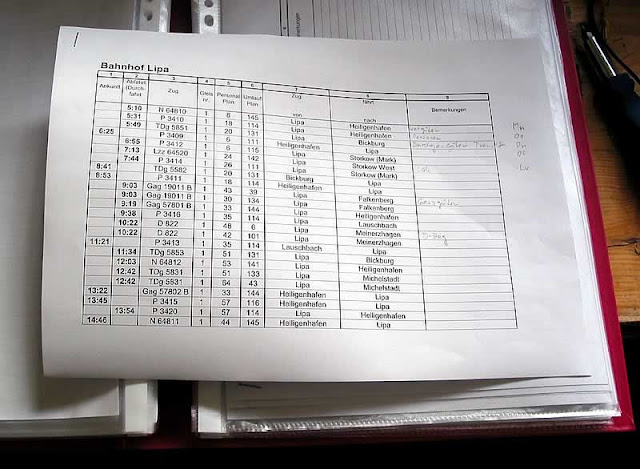 Bahnhof Lipa
1 2 3 4 5 6 7 8 9
Ankunft Abfahrt (Durchfahrt) Zug Gleis nr. Personal Plan Umlauf Plan Zug von fährt nach Bemerkungen
5:10 N 64810 1 8 145 Lipa Heiligenhafen
5:31 P 3410 1 18 114 Lipa Heiligenhafen
5:49 TDg 5851 1 20 131 Lipa Bickburg
6:25 P 3409 1 6 111 Heiligenhafen Lipa
6:55 P 3412 1 6 115 Lipa Storkow (Mark)
7:13 Lzz 64520 1 24 142 Lipa Storkow West
7:44 P 3414 1 26 111 Lipa Storkow (Mark)
8:41 TDg 5582 1 20 131 Bickburg Lipa
8:53 P 3411 1 18 114 Heiligenhafen Lipa
9:03 Gag 19011 B 1 43 39 Lipa Falkenberg
9:03 Gag 19011 B 1 30 134 Lipa Falkenberg
9:19 Gag 57801 B 1 33 144 Lipa Heiligenhafen
9:38 P 3416 1 35 114 Lipa Lauschbach
10:22 D 822 1 48 6 Lipa Meinerzhagen
10:22 D 822 1 42 101 Lipa Meinerzhagen
11:21 P 3413 1 35 114 Lauschbach Lipa
11:34 TDg 5853 1 51 131 Lipa Bickburg
12:03 N 64812 1 53 141 Lipa Heiligenhafen
12:42 TDg 5831 1 51 133 Lipa Michelstadt
12:42 TDg 5831 1 54 43 Lipa Michelstadt
13:22 Gag 57802 B 1 33 144 Heiligenhafen Lipa
13:45 P 3415 1 57 116 Heiligenhafen Lipa
13:54 P 3420 1 57 114 Lipa Heiligenhafen
14:46 N 64811 1 44 145 Heiligenhafen Lipa